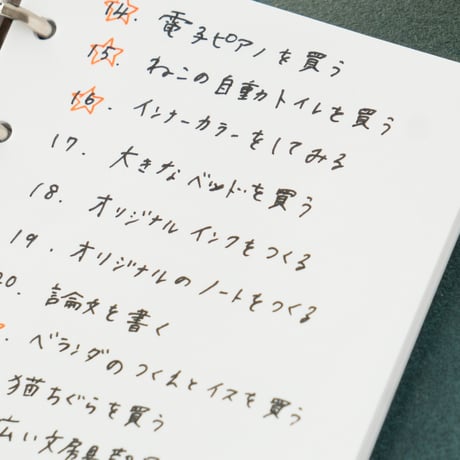 14. 電子ピアノを買う
15. ねこの自動トイレを買う
16. インナーカラーをしてみる
17. 大きなベッドを買う
18. オリジナルインクをつくる
19. オリジナルのノートをつくる
20. 論文を書く
ベランダのつくえとイスを買う
猫ちぐらを買う
広い文房具